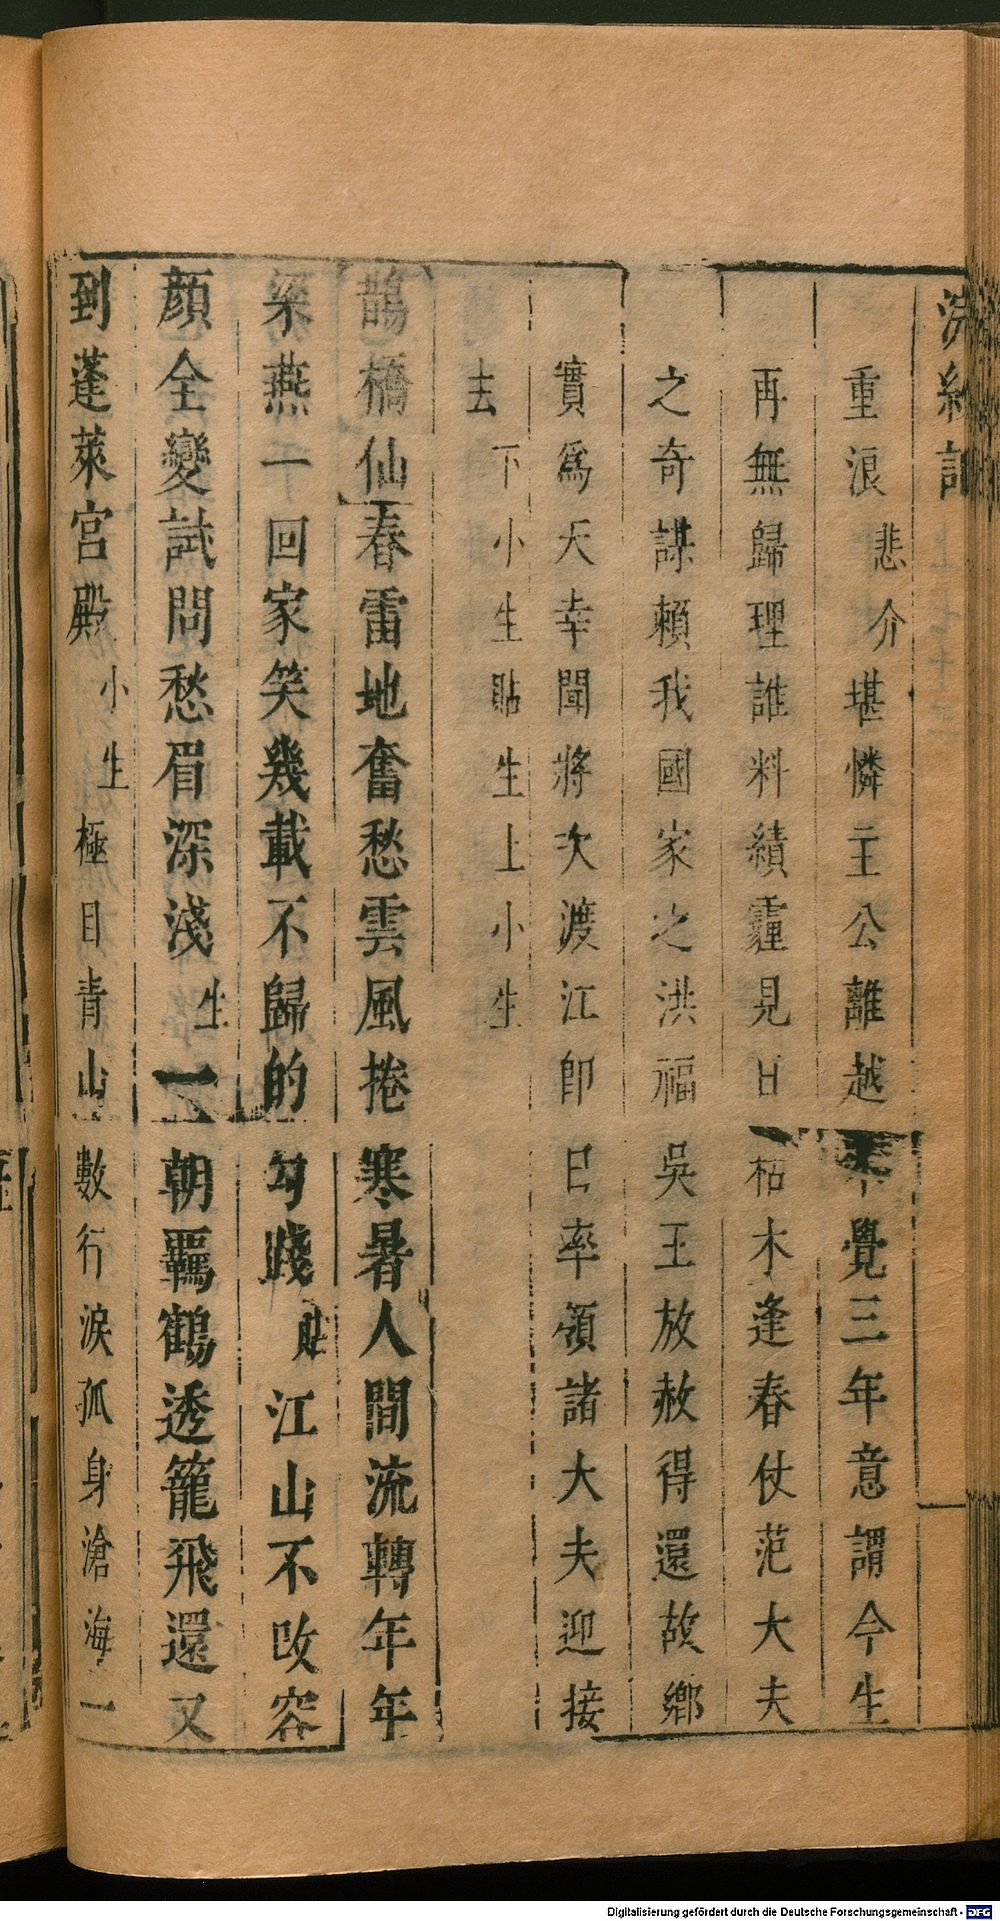 浣紗記
重浪悲介堪憐主公離越不覺三年意謂今生
再無歸理誰料積霾見日枯木逢春仗范大夫
之奇謀賴我國家之洪福吳王放赦得還故鄉
實爲天幸聞將次渡江卽日率領諸大夫迎接
去下小生貼生上小生
鵲橋仙春雷地奮愁雲風捲寒暑人間流轉年年
梁燕一回家笑幾載不歸的勾踐貼江山不改容
顔全變試問愁眉深淺生一朝羈鶴透籠飛還又
到蓬萊宮殿小生極目青山數行淚孤身滄海一
Digitalisierung gefördert durch die Deutsche Forschungsgemeinschaft - DFG